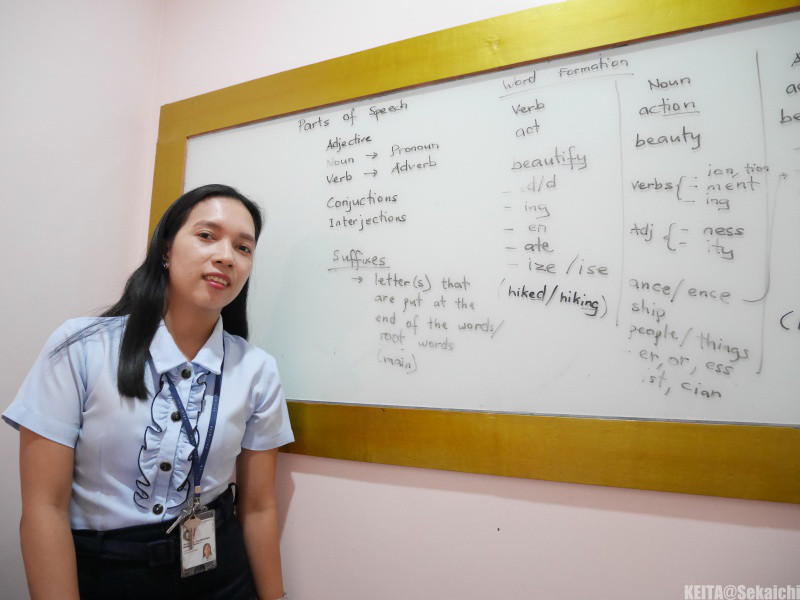 Parts of Speech
Adjective
Noun → Pronoun
Verb → Adverb
Conjuctions
Interjections
Suffixes
→ letter(s) that
are put at the
end of the words/
root words
(main)
Word Formation
Verb
act
beautify
- d/d
- ing
- en
- ate
- ize /ise
(hiked/hiking)
Noun
action
beauty
verbs { - ion, tion
- ment
- ing
Adj { - ness
- ity
ance/ence
ship
people/things
er, or, ess
ist, cian
KEITA@Sekaichi